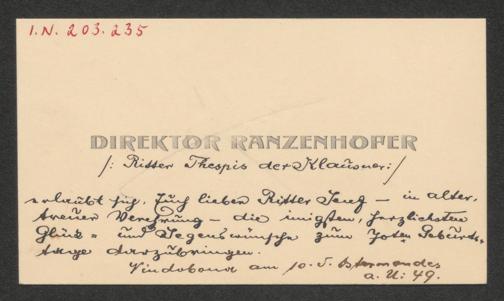 I.N. 203.235
DIREKTOR RANZENHOFER
/: Ritter Thespis der Klausner :/
erlaubt sich, Euch lieben Ritter – in alter,
treuer Verehrung – die innigsten, herzlichsten
Glück- und Segenswünsche zum 70ten Geburts-
tage darzubringen.
Vindobona am 10. d. Ostermondes
a. U. 49.